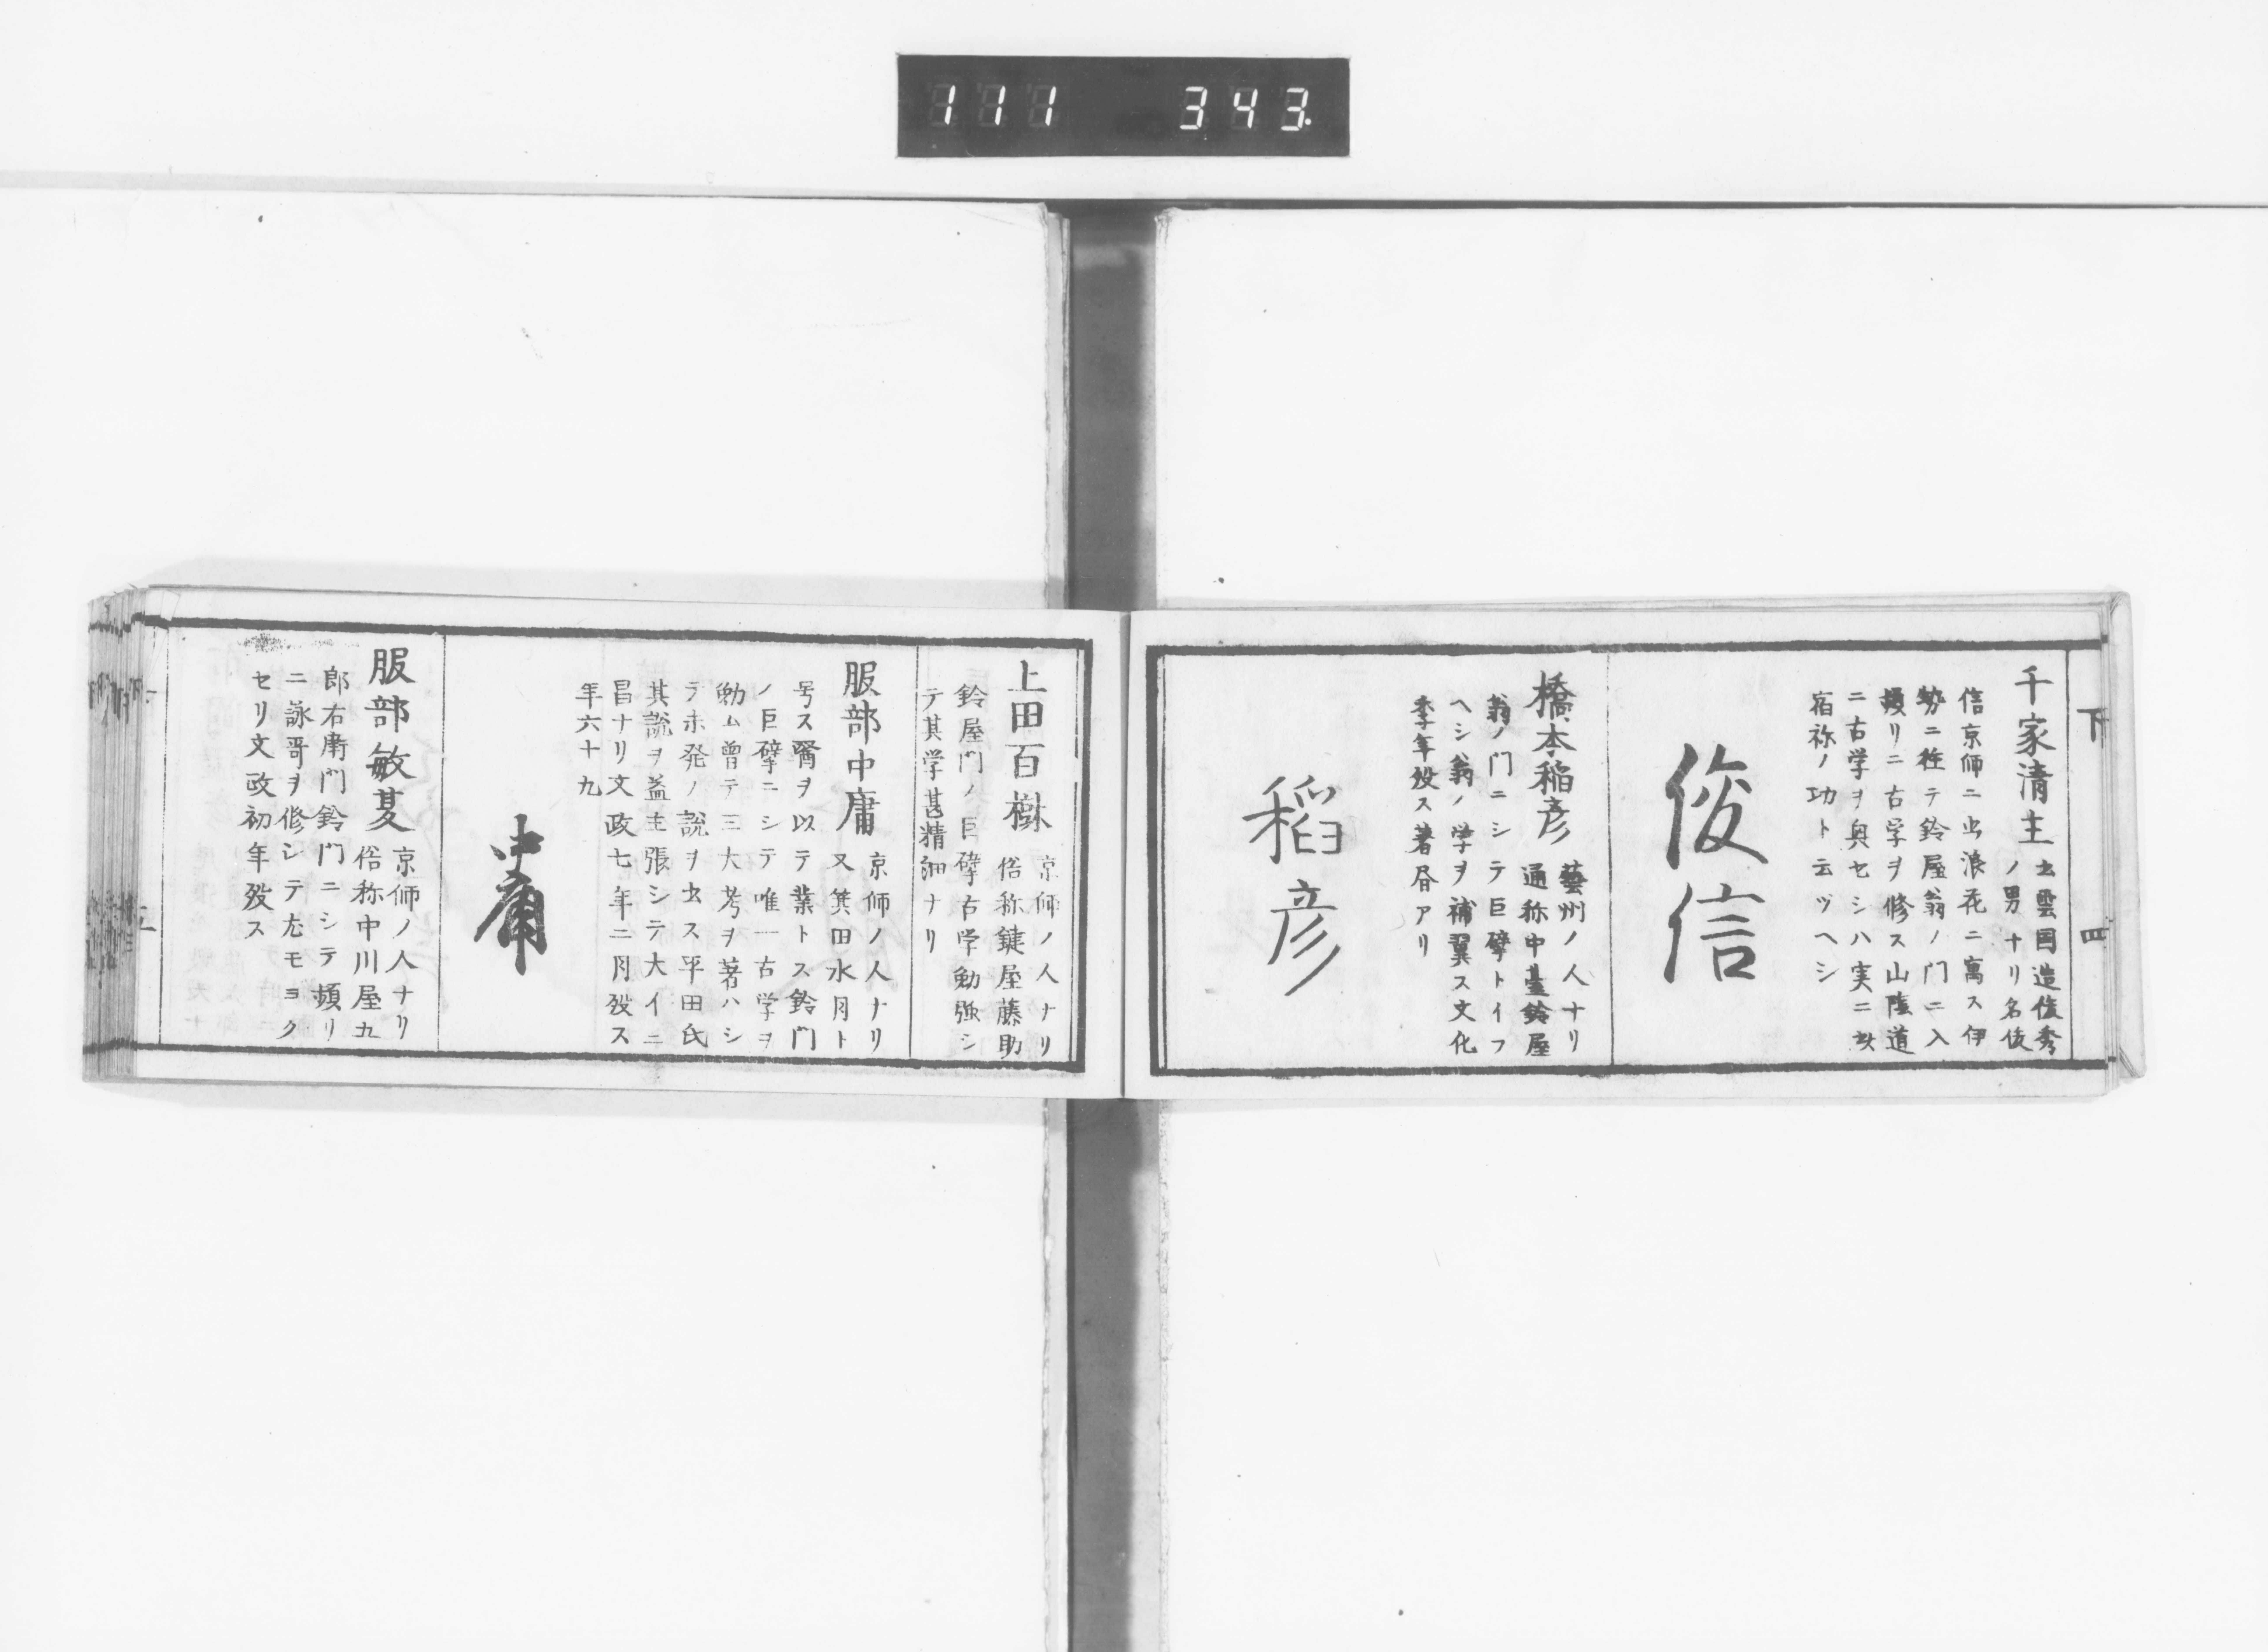 111 343.
下 四
千家清主 出雲国造俊秀
ノ男ナリ名俊
信京師ニ出浪花ニ寓ス伊
勢ニ往テ鈴屋翁ノ門ニ入
頻リニ古学ヲ修ス山陰道
ニ古学ヲ興セシハ実ニ此
宿祢ノ功ト云ヅヘシ
俊信
橋本稲彦 藝州ノ人ナリ
通称中臺鈴屋
翁ノ門ニシテ巨擘トイフ
ヘシ翁ノ学ヲ補翼ス文化
季年歿ス著昏アリ
稲彦
上田百樹 京師ノ人ナリ
俗称鍵屋藤助
鈴屋門ノ巨擘古学勉強シ
テ其学甚精細ナリ
服部中庸 京師ノ人ナリ
又箕田水月ト
号ス醫ヲ以テ業トス鈴門
ノ巨擘ニシテ唯一古学ヲ
勉ム曽テ三大考ヲ著ハシ
テ未発ノ説ヲ出ス平田氏
其説ヲ益主張シテ大イニ
昌ナリ文政七年二月歿ス
年六十九
中庸
服部敏夏 京師ノ人ナリ
俗称中川屋五
郎右衛門鈴門ニシテ頻リ
ニ詠哥ヲ修シテ尤モヨク
セリ文政初年歿ス